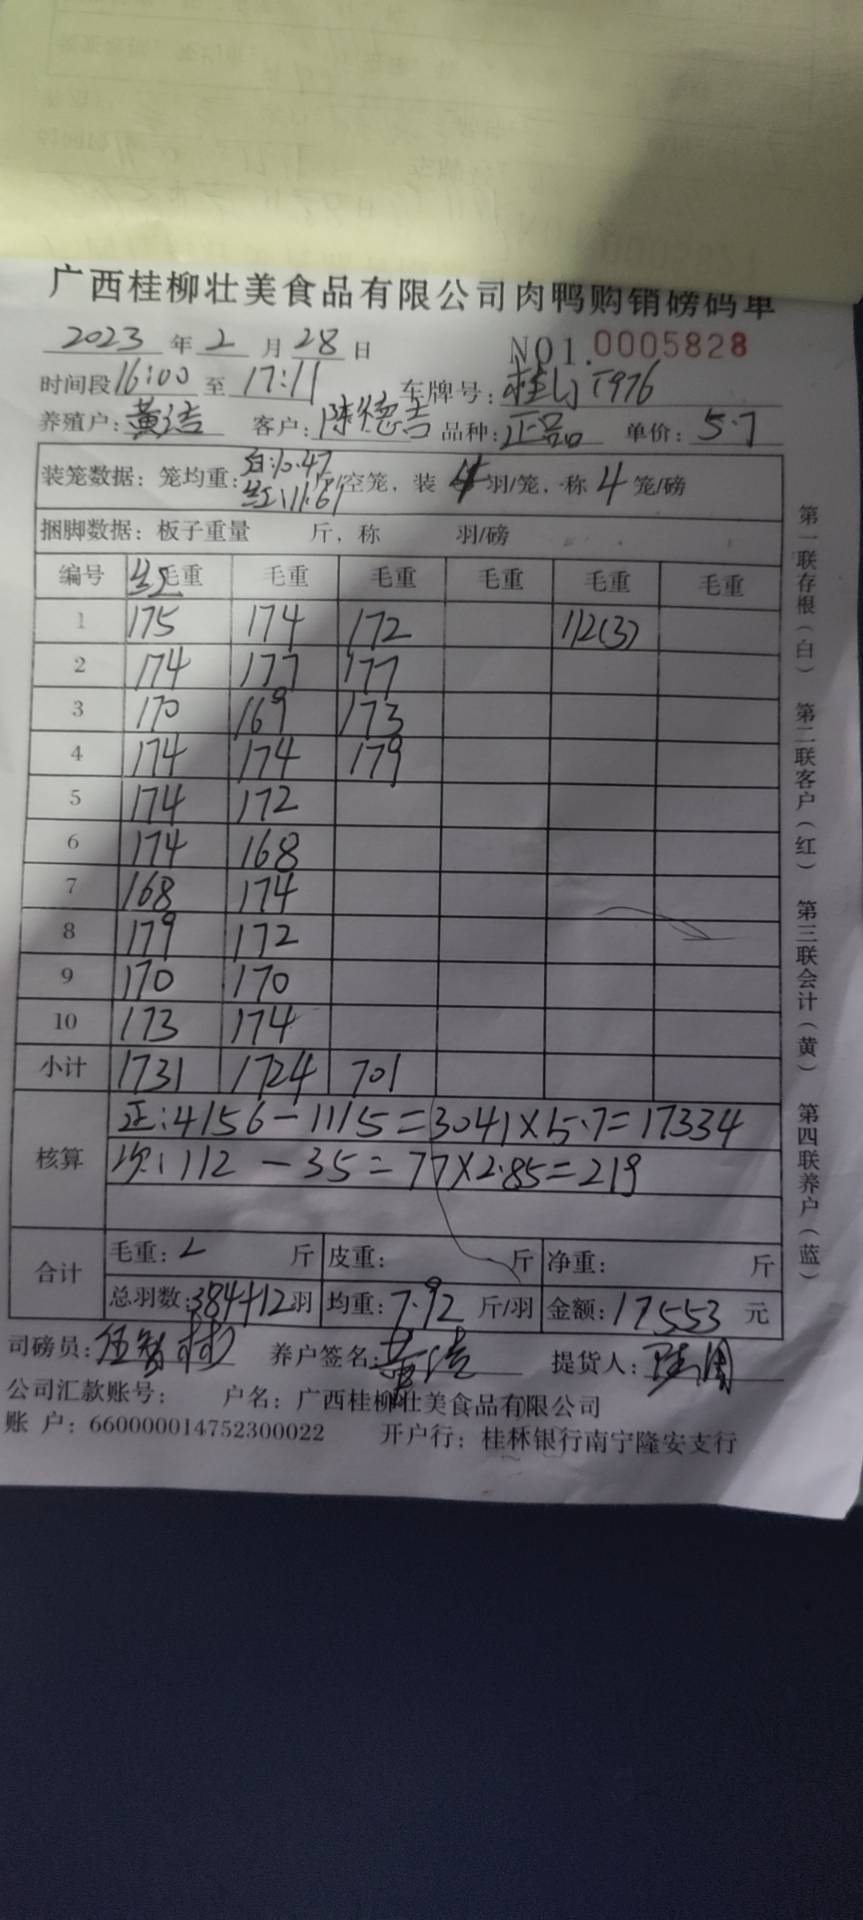 广西桂柳壮美食品有限公司肉鸭购销磅码单
2023 年 2 月 28 日 NO1.0005828
时间段 16:00 至 17:11 车牌号:桂 T976
养殖户:黄洁 客户:陈德吉 品种:正品 单价:5.7
装笼数据:笼均重:白:10.47 红:11.61 /空笼,装 4 羽/笼,称 4 笼/磅
捆脚数据:板子重量 斤,称 羽/磅
编号 红 毛重 毛重 毛重 毛重 毛重 毛重
1 175 174 172 112(3)
2 174 177 177
3 170 169 173
4 174 174 179
5 174 172
6 174 168
7 168 174
8 179 172
9 170 170
10 173 174
小计 1731 1724 701
核算
正:4156-1115=3041×5.7=17334
次:112-35=77×2.85=219
合计
毛重: 斤 皮重: 斤 净重: 斤
总羽数:384+12羽 均重:7.92 斤/羽 金额:17553 元
司磅员:伍智彬 养户签名:黄洁 提货人:
公司汇款账号: 户名:广西桂柳壮美食品有限公司
账 户:6600000014752300022 开户行:桂林银行南宁隆安支行
第一联存根(白) 第二联客户(红) 第三联会计(黄) 第四联养户(蓝)